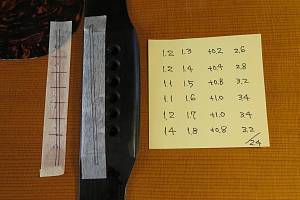 1.2 1.3 +0.2 2.6
1.2 1.4 +0.4 2.8
1.1 1.5 +0.8 3.2
1.1 1.6 +1.0 3.4
1.2 1.7 +1.0 3.4
1.4 1.8 +0.8 3.2
/24